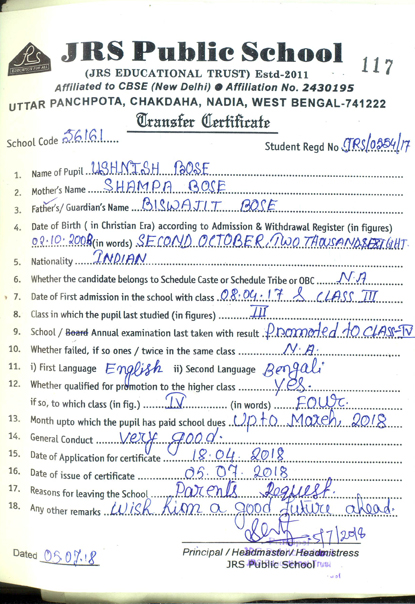 JRS Public School
117
(JRS EDUCATIONAL TRUST) Estd-2011
Affiliated to CBSE (New Delhi) ● Affiliation No. 2430195
UTTAR PANCHPOTA, CHAKDAHA, NADIA, WEST BENGAL-741222
Transfer Certificate
School Code 56161
Student Regd No JRS/0254/17
1. Name of Pupil USHNISH BOSE
2. Mother's Name SHAMPA BOSE
3. Father's/ Guardian's Name BISWAJIT BOSE
4. Date of Birth ( in Christian Era) according to Admission & Withdrawal Register (in figures)
02.10.2008 (in words) SECOND OCTOBER, TWO THOUSAND EIGHT.
5. Nationality INDIAN
6. Whether the candidate belongs to Schedule Caste or Schedule Tribe or OBC N.A
7. Date of First admission in the school with class 08.04.17 & CLASS III
8. Class in which the pupil last studied (in figures) III
9. School / Board Annual examination last taken with result Promoted to CLASS-IV
10. Whether failed, if so ones / twice in the same class N.A.
11. i) First Language English ii) Second Language Bengali
12. Whether qualified for promotion to the higher class Yes.
if so, to which class (in fig.) IV (in words) FOUR.
13. Month upto which the pupil has paid school dues Upto March, 2018
14. General Conduct very good.
15. Date of Application for certificate 18.04.2018
16. Date of issue of certificate 05.07.2018
17. Reasons for leaving the School Parents Request.
18. Any other remarks Wish him a good future ahead.
5/7/2018
Dated 05.07.18
Principal / Headmaster/ Headmistress
JRS Public School